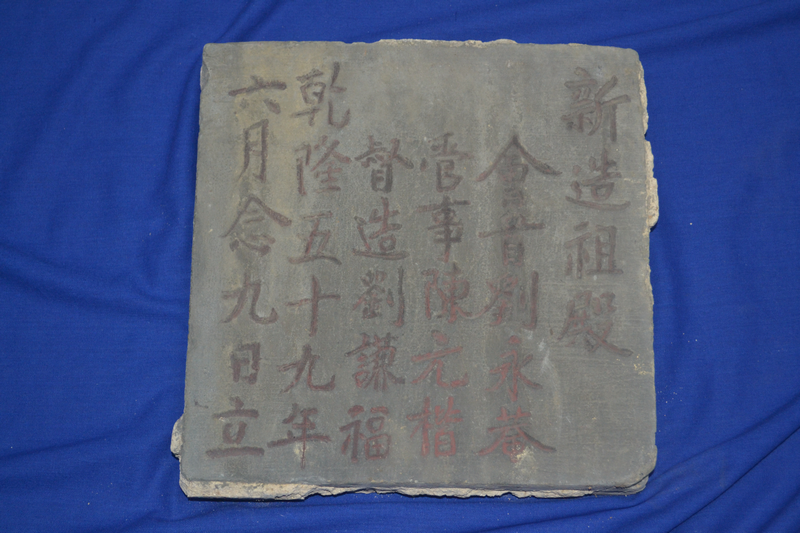 新造祖殿
會首劉永菴
管事陳元楷
督造劉謙福
乾隆五十九年
六月念九日立